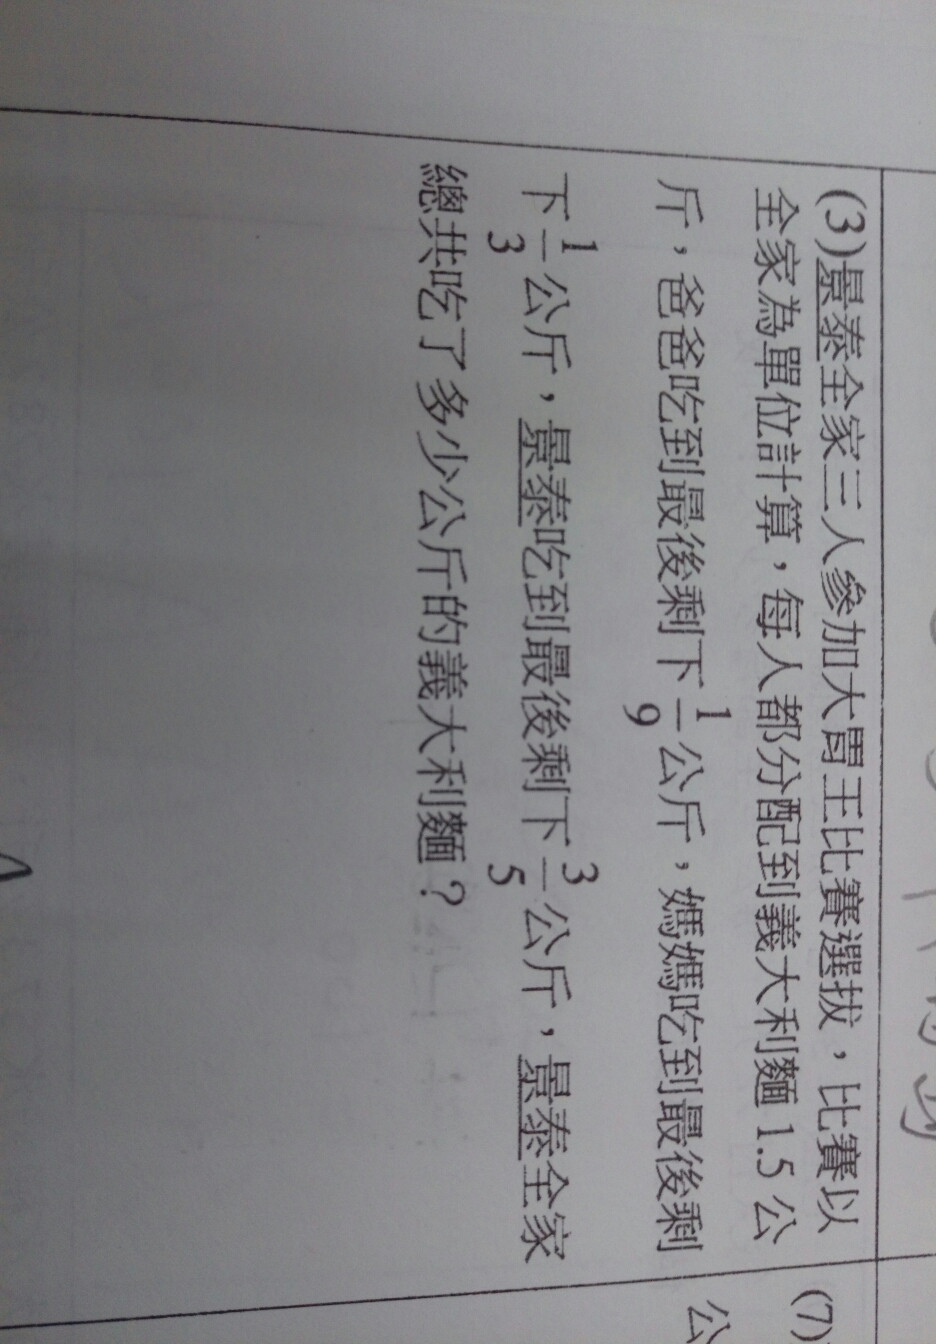 (3)景泰全家三人參加大胃王比賽選拔，比賽以
全家為單位計算，每人都分配到義大利麵 1.5 公
斤，爸爸吃到最後剩下1/9公斤，媽媽吃到最後剩
下1/3公斤，景泰吃到最後剩下3/5公斤，景泰全家
總共吃了多少公斤的義大利麵？
(7)
公